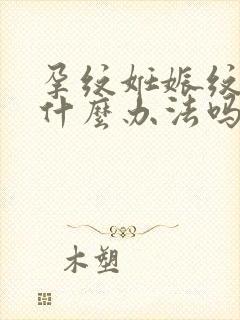 孕纹妊娠纹
什麼办法吗
木塑